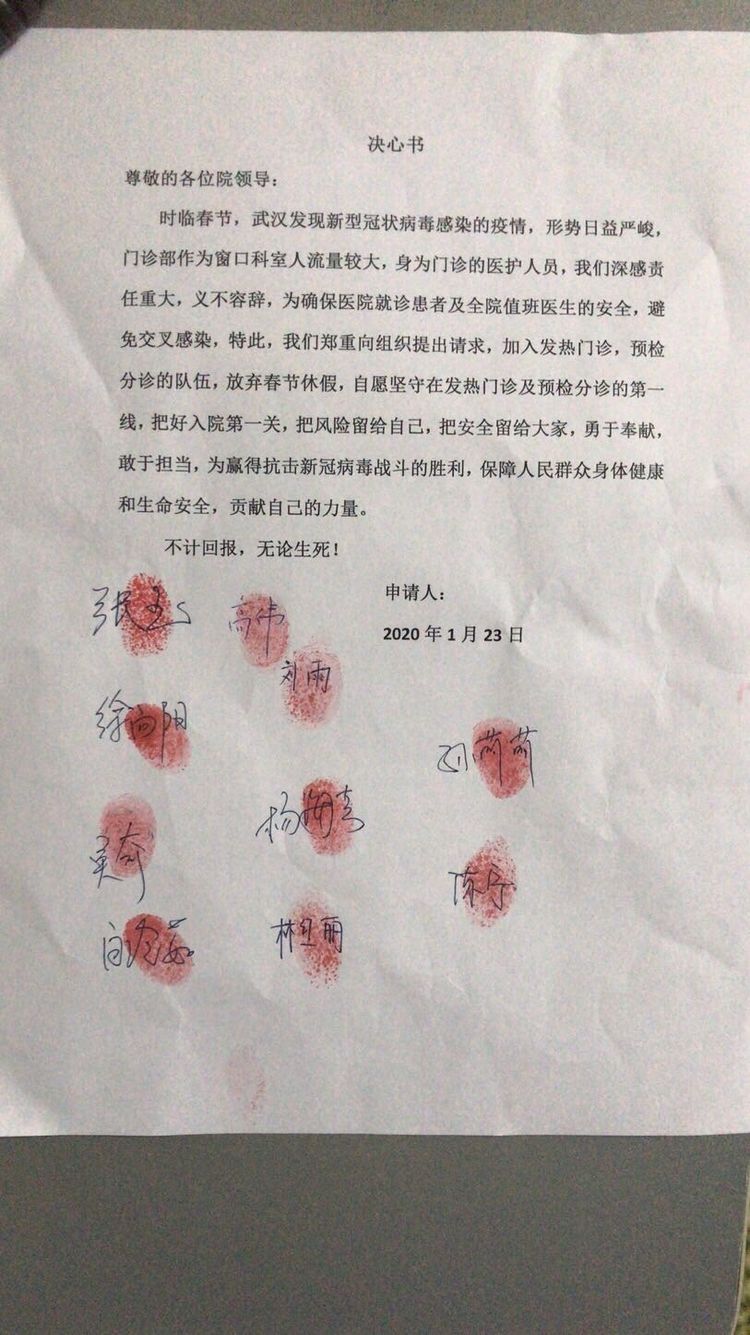 决心书
尊敬的各位院领导：
时临春节，武汉发现新型冠状病毒感染的疫情，形势日益严峻，
门诊部作为窗口科室人流量较大，身为门诊的医护人员，我们深感责
任重大，义不容辞，为确保医院就诊患者及全院值班医生的安全，避
免交叉感染，特此，我们郑重向组织提出请求，加入发热门诊，预检
分诊的队伍，放弃春节休假，自愿坚守在发热门诊及预检分诊的第一
线，把好入院第一关，把风险留给自己，把安全留给大家，勇于奉献，
敢于担当，为赢得抗击新冠病毒战斗的胜利，保障人民群众身体健康
和生命安全，贡献自己的力量。
不计回报，无论生死！
申请人：
2020 年 1 月 23 日
高伟
刘雨
徐向阳
孙萌萌
杨海青
陈宁